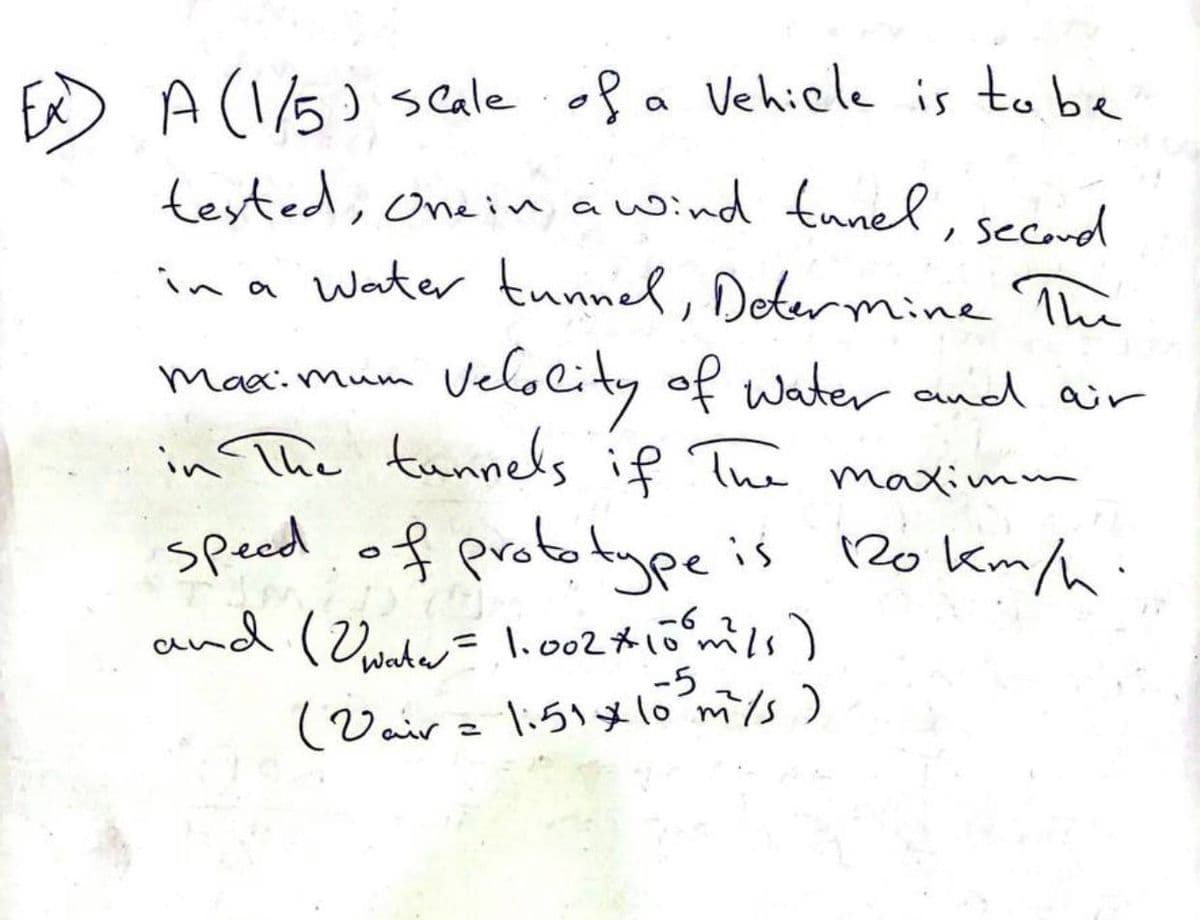 Ex) A (1/5) scale of a Vehicle is to be
tested, one in a wind tunel, second
in a water tunnel, Determine The
maximum velocity of water and air
in The tunnels if The maximum
speed of prototype is 120 km/h.
and (ν water = 1.002 * 10⁻⁶ m²/s)
(ν air = 1.51 * 10⁻⁵ m²/s)